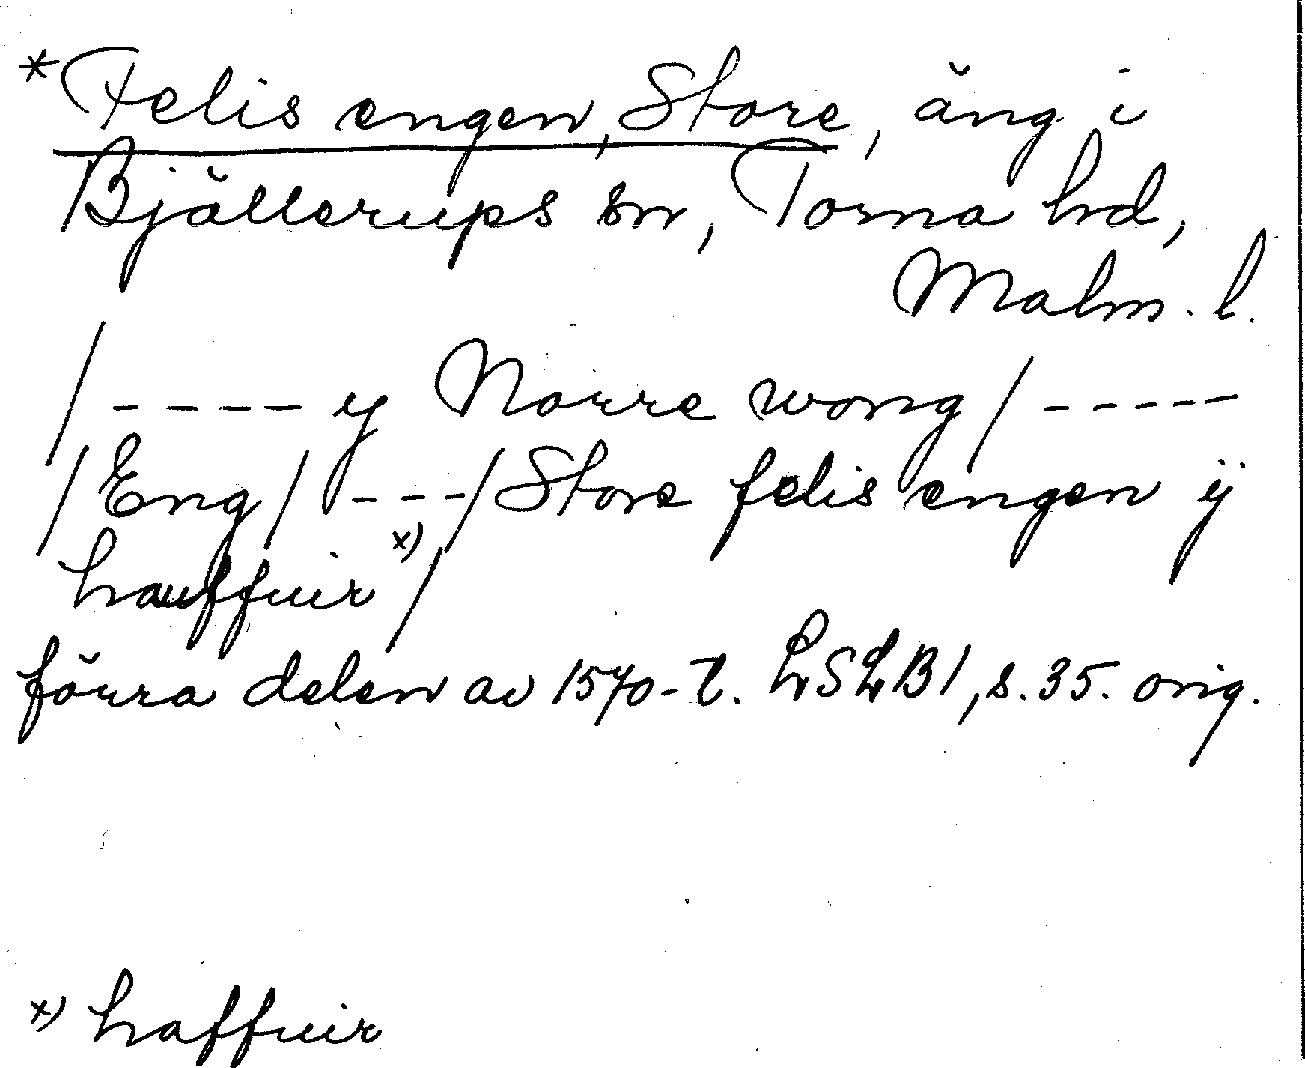 *Felis engen, Store, äng i
Bjällerups sn, Torna hd,
Malm. l.
/ ---- y Norre wong / -----
/ Eng / --- / Store felis engen ÿ
hauffuir x) /
förra delen av 1570-t. LSLB1, s. 35. orig.
x) haffuir